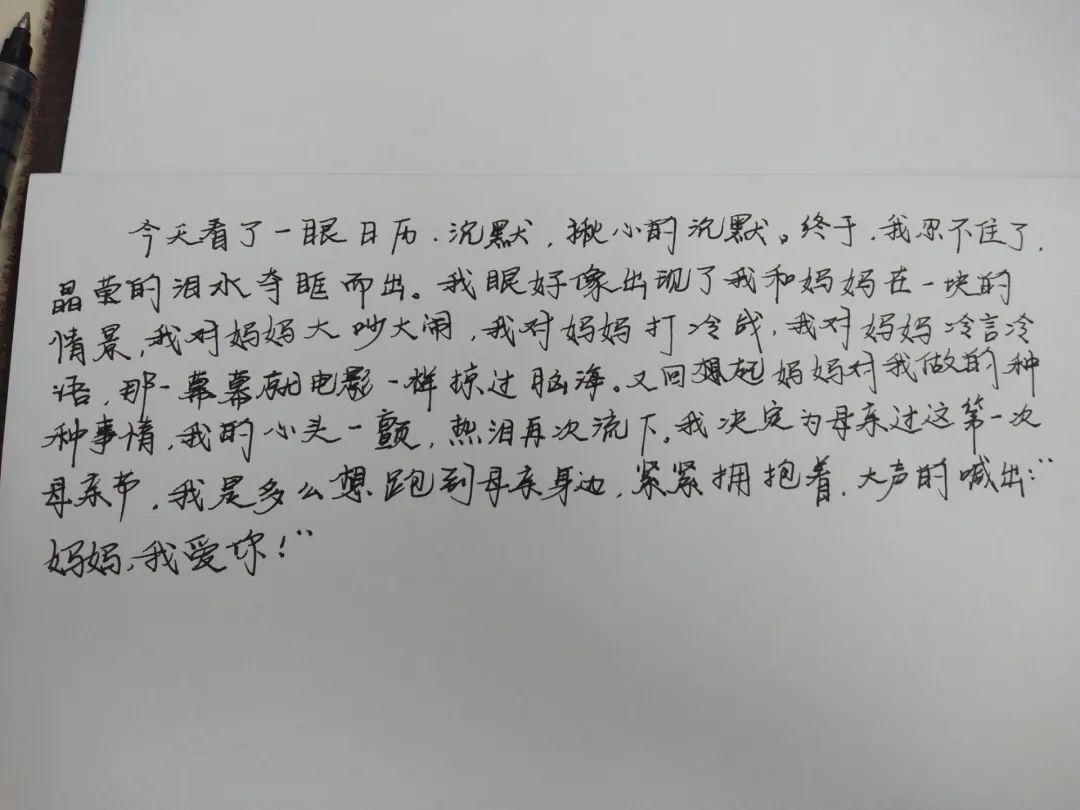 今天看了一眼日历.沉默,揪心的沉默。终于,我忍不住了,
晶莹的泪水夺眶而出。我眼好像出现了我和妈妈在一块的
情景,我对妈妈大吵大闹,我对妈妈打冷战,我对妈妈冷言冷
语,那一幕幕就电影一样掠过脑海。又回想起妈妈对我做的种
种事情,我的小头一颤,热泪再次流下。我决定为母亲过这第一次
母亲节,我是多么想跑到母亲身边,紧紧拥抱着,大声的喊出:“
妈妈,我爱你!”